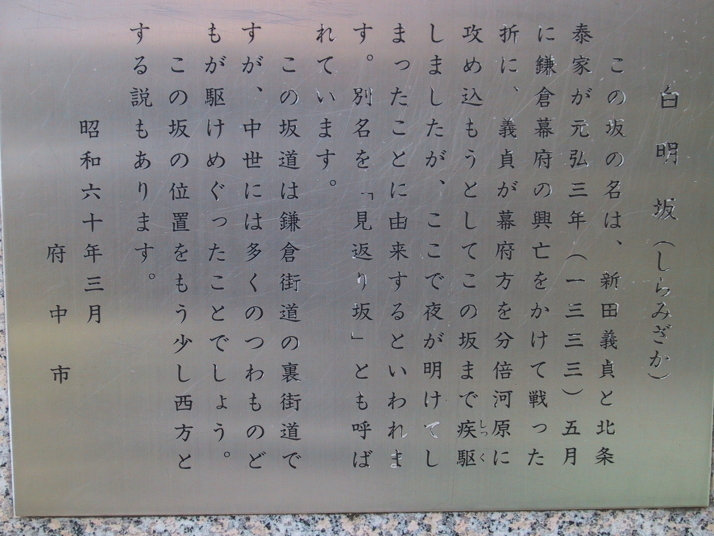 白明坂(しらみざか)
この坂の名は、新田義貞と北条
泰家が元弘三年(一三三三)五月
に鎌倉幕府の興亡をかけて戦った
折に、義貞が幕府方を分倍河原に
攻め込もうとしてこの坂まで疾駆
しましたが、ここで夜が明けてし
まったことに由来するといわれま
す。別名を「見返り坂」とも呼ば
れています。
この坂道は鎌倉街道の裏街道で
すが、中世には多くのつわものど
もが駆けめぐったことでしょう。
この坂の位置をもう少し西方と
する説もあります。
昭和六十年三月
府中市